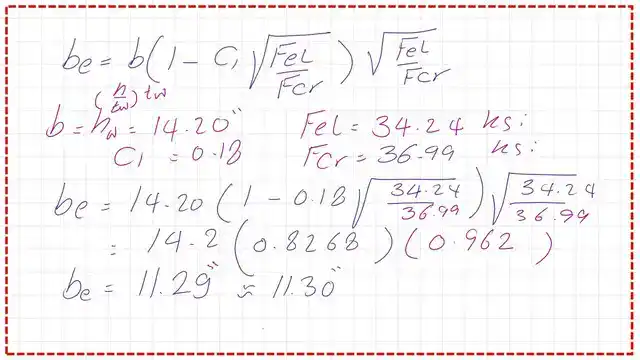 be = b(1 - C1 √(Fel/Fcr)) √(Fel/Fcr)
(h/tw) tw
b = hw = 14.20" Fel = 34.24 ksi
C1 = 0.18 Fcr = 36.99 ksi
be = 14.20 (1 - 0.18 √(34.24/36.99)) √(34.24/36.99)
= 14.2 (0.8268) (0.962)
be = 11.29" ≈ 11.30"